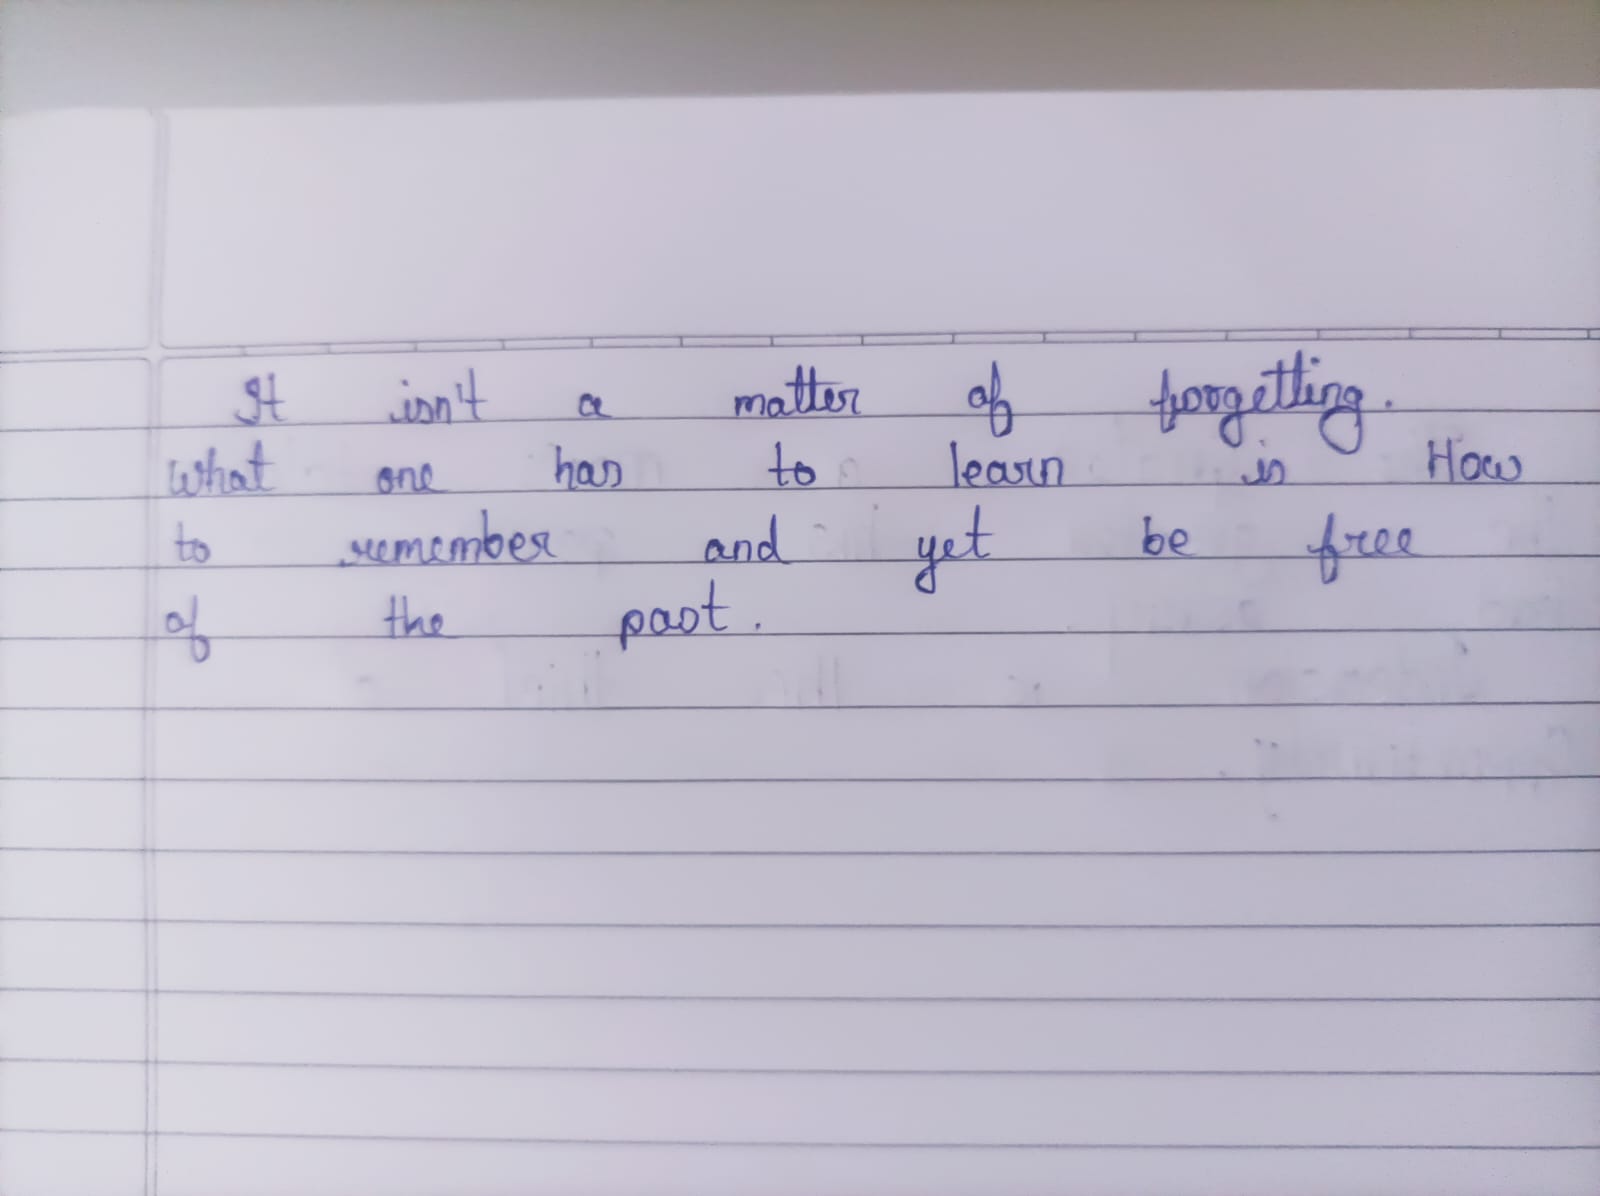 It isn't a matter of forgetting.
What one has to learn is How
to remember and yet be free
of the past.